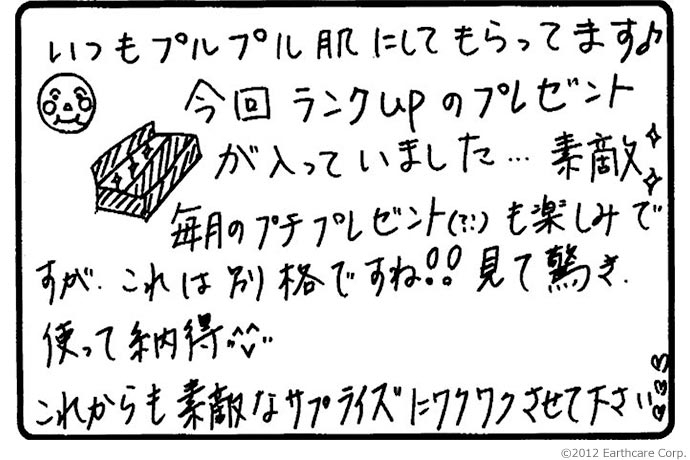 いつもプルプル肌にしてもらってます♪
今回ランクupのプレゼント
が入っていました…素敵
毎月のプチプレゼント(?!)も楽しみで
すが、これは別格ですね!!見て驚き、
使って納得
これからも素敵なサプライズにワクワクさせて下さい
©2012 Earthcare Corp.